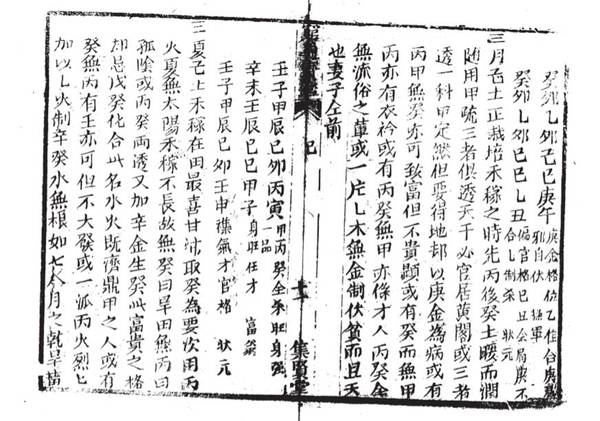 癸卯乙卯己巳庚午
癸卯乙卯己巳乙丑 偏官格巳丑会局庚不合乙制杀 狀元
三月己土正栽培禾稼之時先丙後癸土暖而潤
随用甲疏三者俱透天干必官居黄閣或三者
透一科甲定然但要得地却以庚金為病或有
丙甲無癸亦可致富但不貴顯或有癸而無甲
丙亦有衣衿或有丙癸無甲亦條才人丙癸全
無流俗之軰或一片乙木無金制伏貧而且夭
也妻子仝前
巳 十一 集賢堂
壬子甲辰己卯丙寅 甲丙癸全杀旺身強 一品
辛未壬辰己巳甲子 身旺任才 富翁
壬子甲辰己卯壬申 襍氣才官格 狀元
三夏己土禾稼在田最喜甘沛取癸為要次用丙
火夏無太陽禾稼不長故無癸曰旱田無丙曰
孤陰或丙癸两透又加辛金生癸此富貴之格
却忌戊癸化合此名水火既濟鼎甲之人或有
癸無丙有壬亦可但不大發或一派丙火烈土
加以火制辛癸水無根如七八月之乾旱苗